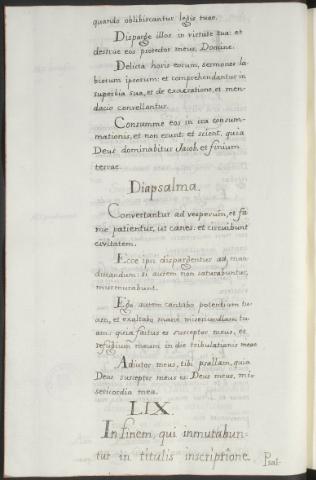 quando obliviscantur legis tuae.
Disperge illos in virtute tua: et
destrue eos protector meus, Domine.
Delicta horis eorum, sermones la-
biorum ipsorum: et comprehendantur in
superbia sua, et de execratione, et men-
dacio convellantur.
Consumme eos in ira consum-
mationis, et non erunt: et scient, quia
Deus dominabitur Jacob, et finium
terrae.
Diapsalma.
Convertantur ad vesperum, et fa-
me patientur, ut canes: et circuibunt
civitatem.
Ecce ipsi dispargentur ad man-
ducandum: si autem non saturabuntur,
murmurabunt.
Ego autem cantabo potentiam tu-
am, et exaltabo mane misericordiam tu-
am: quia factus es susceptor meus, et
refugium meum in die tribulationis meae.
Adiutor meus, tibi psallam, quia
Deus susceptor meus es: Deus meus, mi-
sericordia mea.
LIX.
In finem, qui inmutabun-
tur in titulis inscriptione.
Psal-